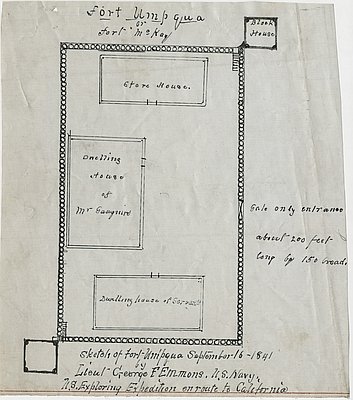 Fort Umpqua
or
Fort McKay
Block
House
Store House.
Dwelling
House
of
Mr Gangnier
Gate only entrance
about 200 feet
long by 150 broad.
Dwelling house of Servants
Sketch of Fort Umpqua September-16-1841
by
Lieut George F Emmons. U.S. Navy.
U.S. Exploring Expedition enroute to California